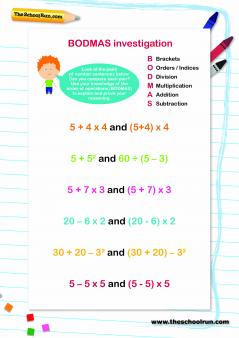 TheSchoolRun.com
BODMAS investigation
Look at the pairs
of number sentences below.
Can you compare each pair?
Use your knowledge of the
order of operations (BODMAS)
to explain and prove your
reasoning.
B Brackets
O Orders / Indices
D Division
M Multiplication
A Addition
S Subtraction
5 + 4 x 4 and (5+4) x 4
5 + 5² and 60 ÷ (5 – 3)
5 + 7 x 3 and (5 + 7) x 3
20 – 6 x 2 and (20 - 6) x 2
30 + 20 – 3² and (30 + 20) – 3²
5 – 5 x 5 and (5 - 5) x 5
www.theschoolrun.com